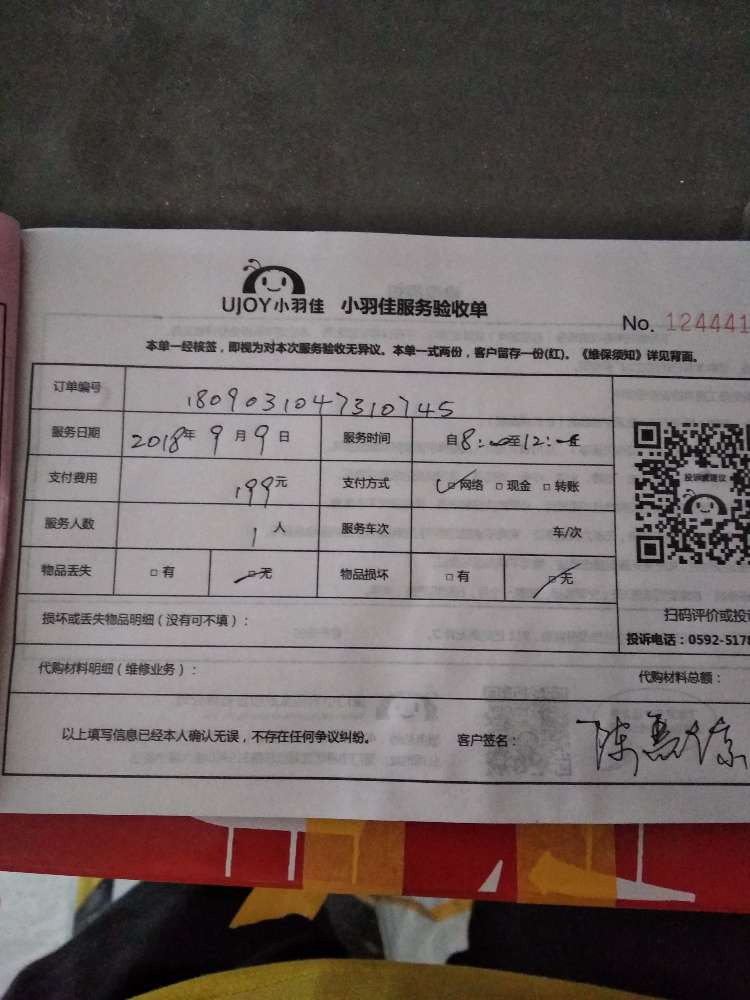 UJOY小羽佳 小羽佳服务验收单
No. 124441
本单一经核签，即视为对本次服务验收无异议。本单一式两份，客户留存一份(红)。《维保须知》详见背面。
订单编号 1809031047310745
服务日期 2018年9月9日 服务时间 自8:00至12:00
支付费用 199元 支付方式 网络 现金 转账
投诉或建议
服务人数 1人 服务车次 车/次
物品丢失 有 无 物品损坏 有 无
扫码评价或投
损坏或丢失物品明细（没有可不填）：
投诉电话：0592-5178
代购材料明细（维修业务）： 代购材料总额：
以上填写信息已经本人确认无误，不存在任何争议纠纷。 客户签名：陈